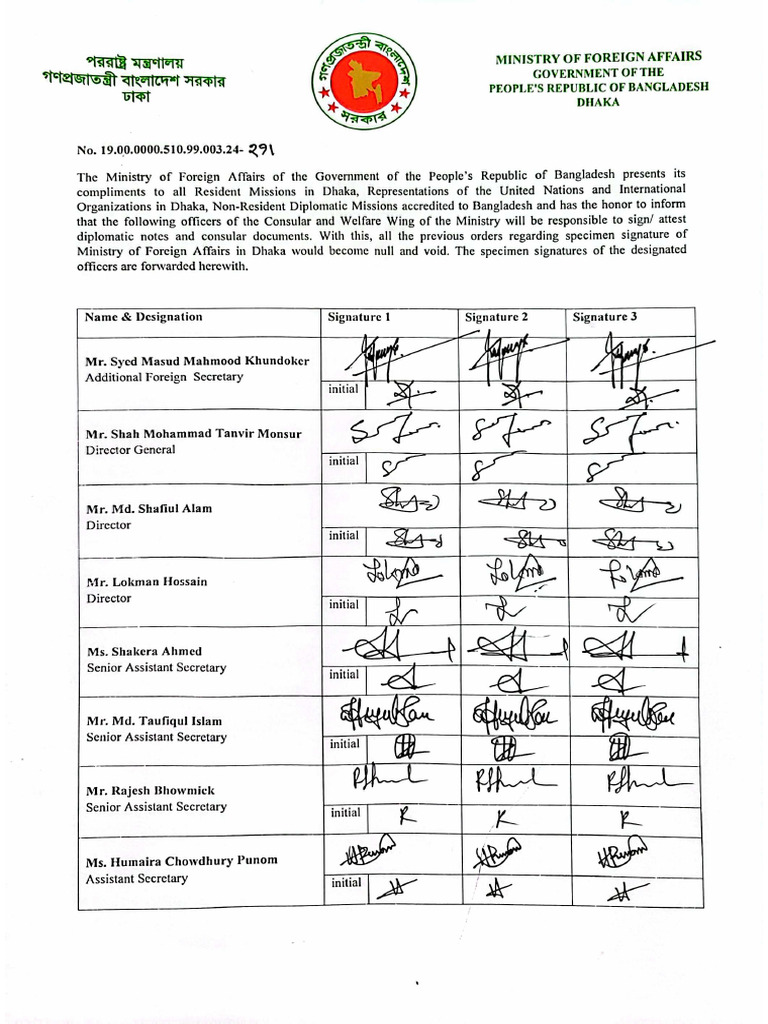 পররাষ্ট্র মন্ত্রণালয়
গণপ্রজাতন্ত্রী বাংলাদেশ সরকার
ঢাকা
গণপ্রজাতন্ত্রী বাংলাদেশ
সরকার
MINISTRY OF FOREIGN AFFAIRS
GOVERNMENT OF THE
PEOPLE'S REPUBLIC OF BANGLADESH
DHAKA
No. 19.00.0000.510.99.003.24-২৭১
The Ministry of Foreign Affairs of the Government of the People's Republic of Bangladesh presents its
compliments to all Resident Missions in Dhaka, Representations of the United Nations and International
Organizations in Dhaka, Non-Resident Diplomatic Missions accredited to Bangladesh and has the honor to inform
that the following officers of the Consular and Welfare Wing of the Ministry will be responsible to sign/ attest
diplomatic notes and consular documents. With this, all the previous orders regarding specimen signature of
Ministry of Foreign Affairs in Dhaka would become null and void. The specimen signatures of the designated
officers are forwarded herewith.
Name & Designation Signature 1 Signature 2 Signature 3
Mr. Syed Masud Mahmood Khundoker
Additional Foreign Secretary
initial
Mr. Shah Mohammad Tanvir Monsur
Director General
initial
Mr. Md. Shafiul Alam
Director
initial
Mr. Lokman Hossain
Director
initial
Ms. Shakera Ahmed
Senior Assistant Secretary
initial
Mr. Md. Taufiqul Islam
Senior Assistant Secretary
initial
Mr. Rajesh Bhowmick
Senior Assistant Secretary
initial R R R
Ms. Humaira Chowdhury Punom
Assistant Secretary
initial